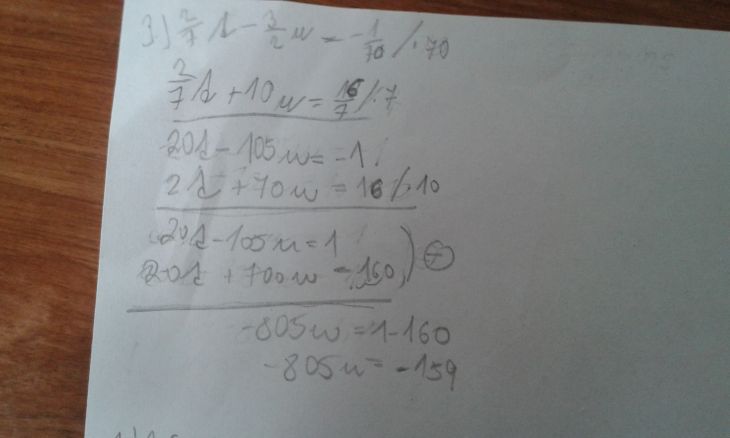 3) 2/7 s - 3/2 u = -1/70 /·70
2/7 s + 10u = 16/7 /·7
20s - 105u = -1 /
2s + 70u = 16 /·10
20s - 105u = 1
20s + 700u = 160
-805u = 1-160
-805u = -159